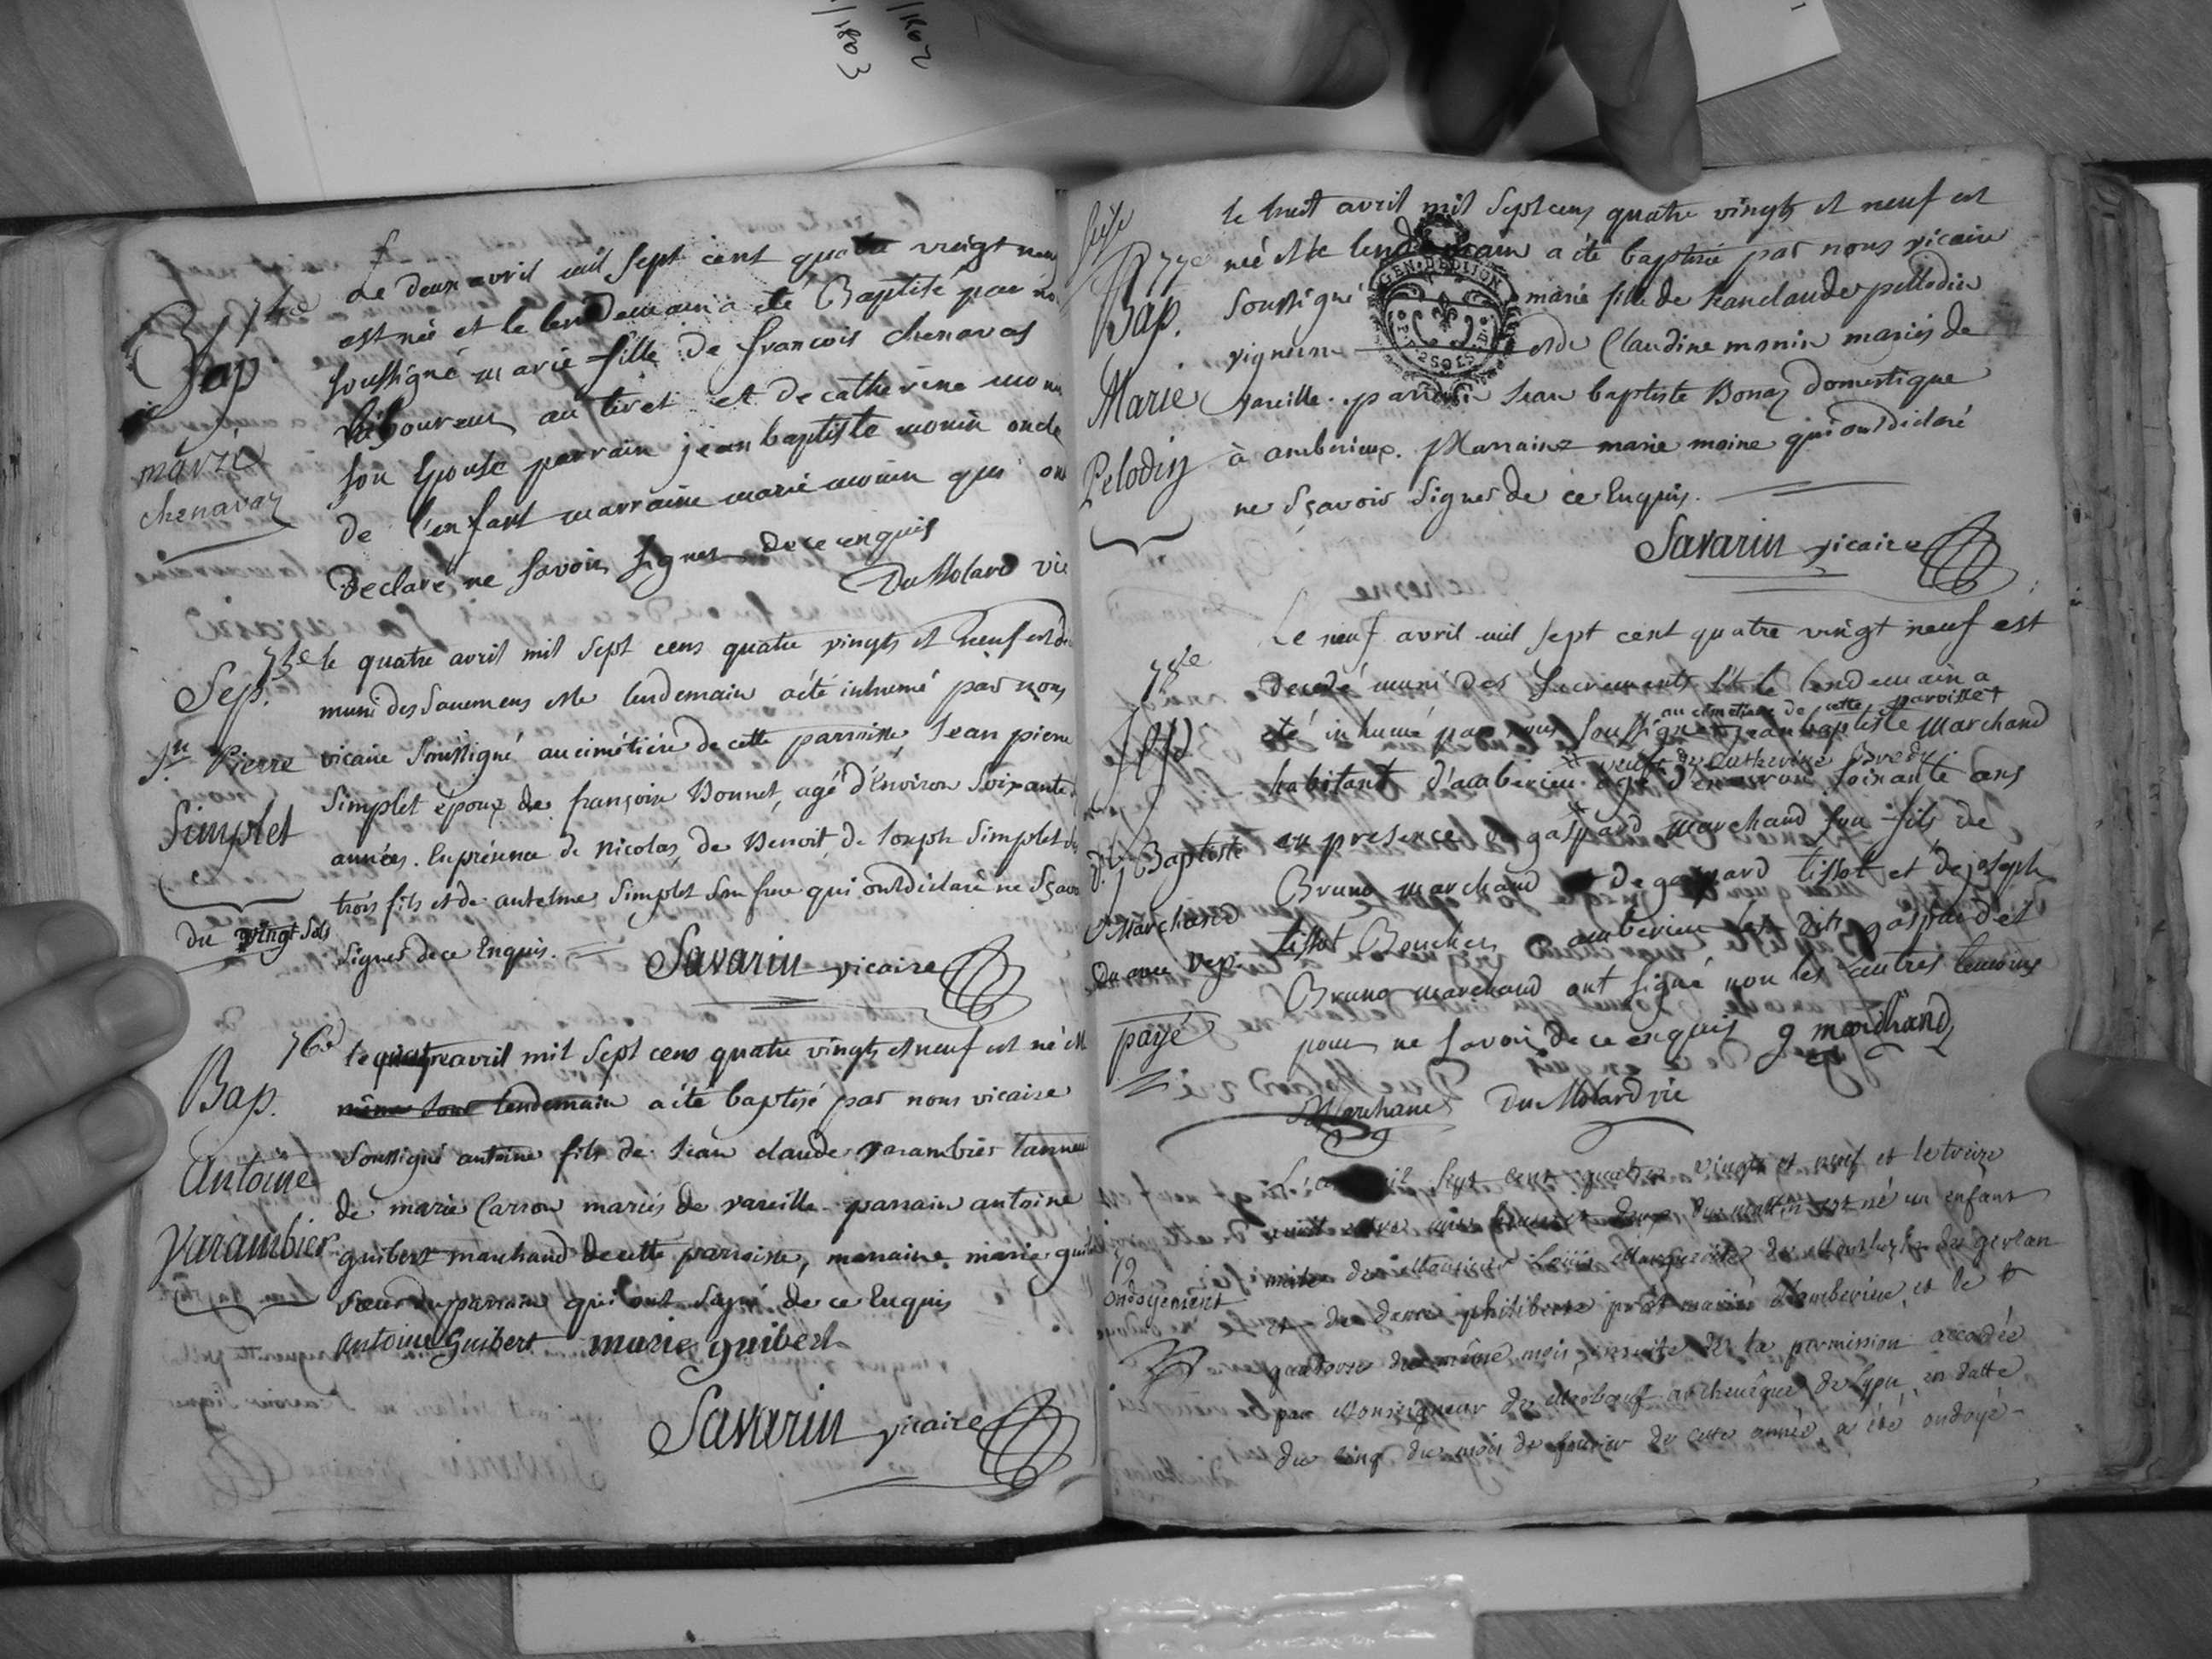 1803
74e
Bap
marie
chenavaz
Le deux avril mil sept cent quatre vingt neuf
est née et le lendemain a eté Baptisé par
soussigné marie fille de francois chenavas
laboureur au tiret et de catherine
son Epouse parrain jean baptiste monin oncle
de l'enfant marraine marie monin qui ont
declaré ne savoir signer de ce enquis
DuMolard vic
75e
Sep.
Jn Pierre
Simplet
du vingt sols
le quatre avril mil sept cens quatre vingts et neuf est
muni des Sacremens et le lendemain a été inhumé par nous
vicaire soussigné au cimétière de cette parroisse, Jean pierre
Simplet époux de françoise Bonnet, agé d'Environ Soixante
années. En présence de Nicolas, de Benoit de Joseph Simplet
trois fils et de antelme Simplet son frere qui ont déclaré ne Sçavoir
signer de ce Enquis.
Savarin vicaire
76e
Bap.
Antoine
Varambier
le quatre avril mil sept cens quatre vingts et neuf est né et
lendemain a été baptisé par nous vicaire
soussigné antoine fils de Jean claude varambier tanneur
de marie Carron mariés de vareille. parrain antoine
guibert marchand de cette parroisse, marraine marie
soeur du parrain qui ont signé de ce Enquis
Antoine Guibert marie guibert
Savarin vicaire
77e
Bap.
Marie
Pelodin
le huit avril mil Sept cens quatre vingts et neuf est
née et le lendemain a été baptisée par nous vicaire
Soussigné marie fille de Jean claude pellodin
vigneron et de Claudine monin mariés de
vareille. parrain Jean baptiste Bonaz Domestique
à amberieux. Marraine marie moine qui ont déclaré
ne Sçavoir Signer de ce Enquis.
Savarin vicaire
GEN. DE DIJON
78e
Baptiste
Marchand
payé
Le neuf avril mil sept cent quatre vingt neuf est
decedé muni des sacrements et le lendemain a
au cimetiere de cette paroisse +
eté inhumé par nous soussigné + jean baptiste Marchand
veuf de Catherine
habitant d'amberieu agé d'environ soixante ans
en presence de gaspard marchand son fils de
Bruno marchand de gaspard tissot et de joseph
tissot Boucher amberieu les dits gaspard et
Bruno marchand ont signé non les autres temoins
pour ne savoir de ce enquis g marchand
Marchand DuMolard vic
79
ondoyement
sept cent quatre vingts et neuf et le treize
du mattin est né un enfant
mâle de Monsieur Louis Marguerite
et de dame philiberte mariés d'amberieu, et le
quatorze du même mois, ensuite de la permission accordée
par Monseigneur de archevêque de Lyon, en datte
du cinq du mois de fevrier de cette année, a été ondoyé